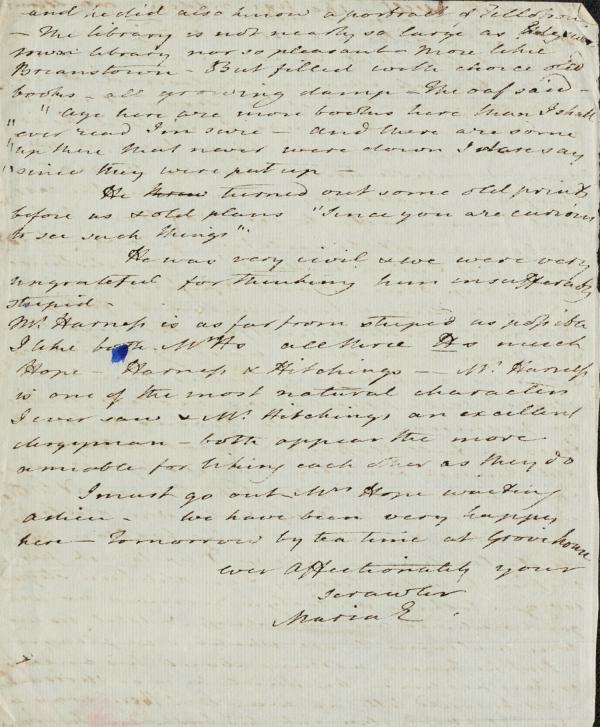 and he did also know a portrait of
– The library is not nearly so large as
library nor so pleasant – More like
Brianstown – But filled with choice old
books – all growing damp – The oaf said –
" "aye here are more books here than I shall
" ever read I'm sure – and there are some
" up there that never were down I dare say
" since they were put up –
He turned out some old prints
before us & old plans "Since you are curious
to see such things".
He was very civil & we were very
ungrateful for thinking him insufferably
stupid –
Mr. Harness is as far from stupid as possible
I like both Mr Hs all three Hs much
Hope – Harness & Hitchings — Mr. Harness
is one of the most natural characters
I ever saw & Mr. Hitchings an excellent
clergyman – both appear the more
amiable for liking each other as they do
I must go out – Mrs Hope waiting
adieu – We have been very happy
here – Tomorrow by tea time at Grove house
ever affectionately your
scrawler
Maria E